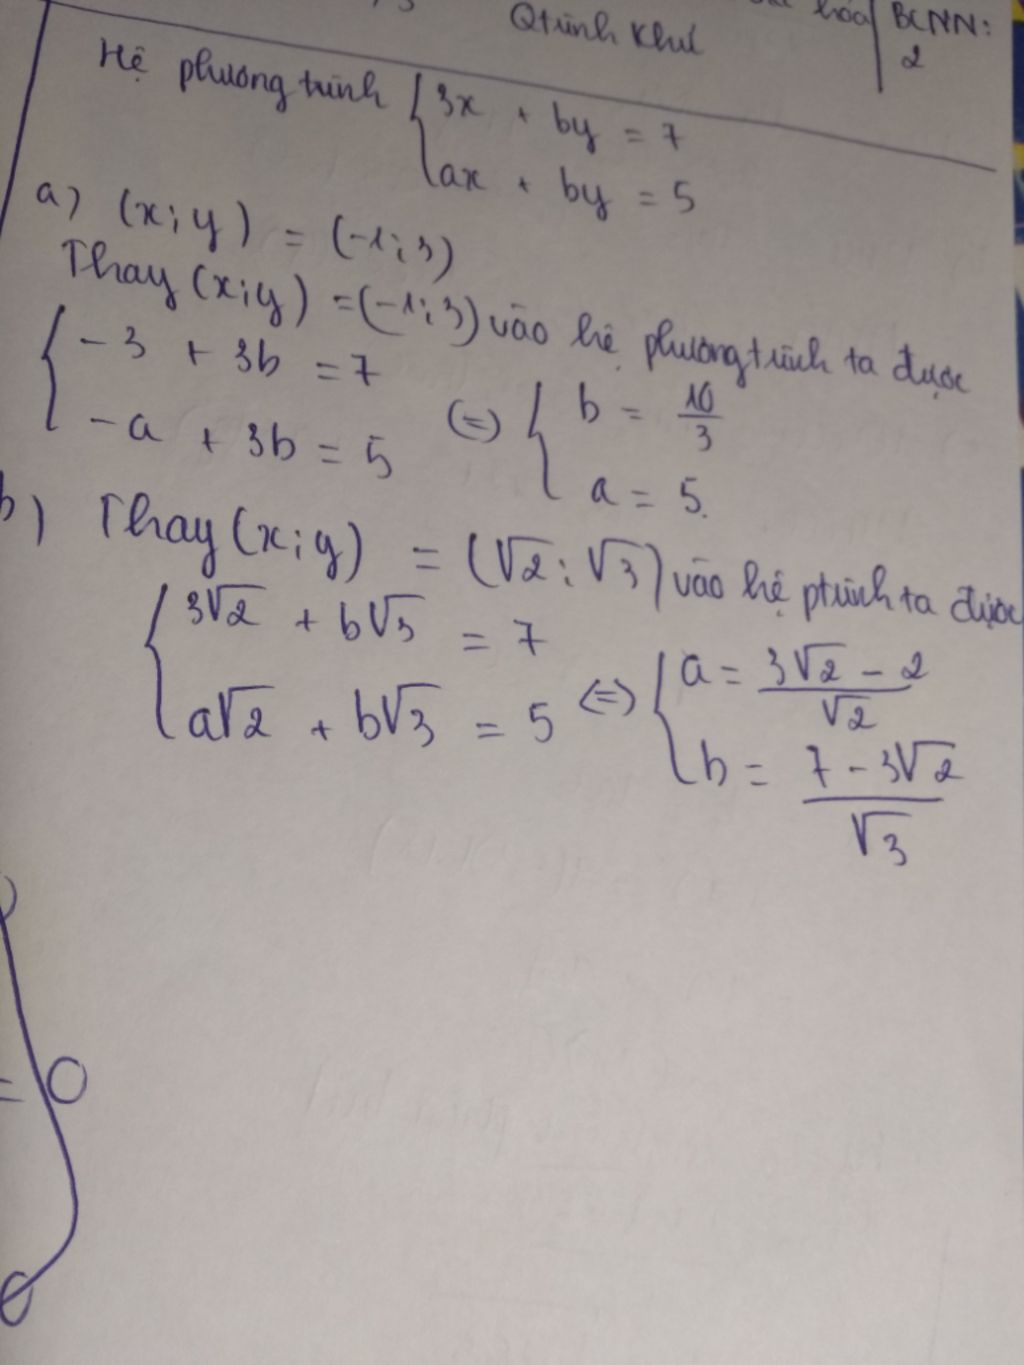 Qtrình khử
hóa
BCNN:
2
Hệ phương trình { 3x + by = 7
ax + by = 5
a) (x;y) = (-1;3)
Thay (x;y) = (-1;3) vào hệ phương trình ta được
{ -3 + 3b = 7
-a + 3b = 5 <=> { b = 10/3
a = 5.
b) Thay (x;y) = (√2; √3) vào hệ ptrình ta được
{ 3√2 + b√3 = 7
a√2 + b√3 = 5 <=> { a = (3√2 - 2)/√2
b = (7 - 3√2)/√3
= 0